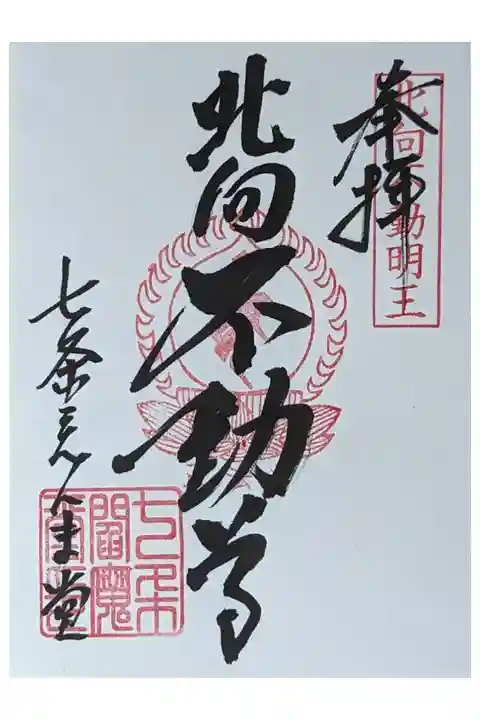 奉拝
北向不動明王
北向不動尊
七条えんま堂
七条
閻魔